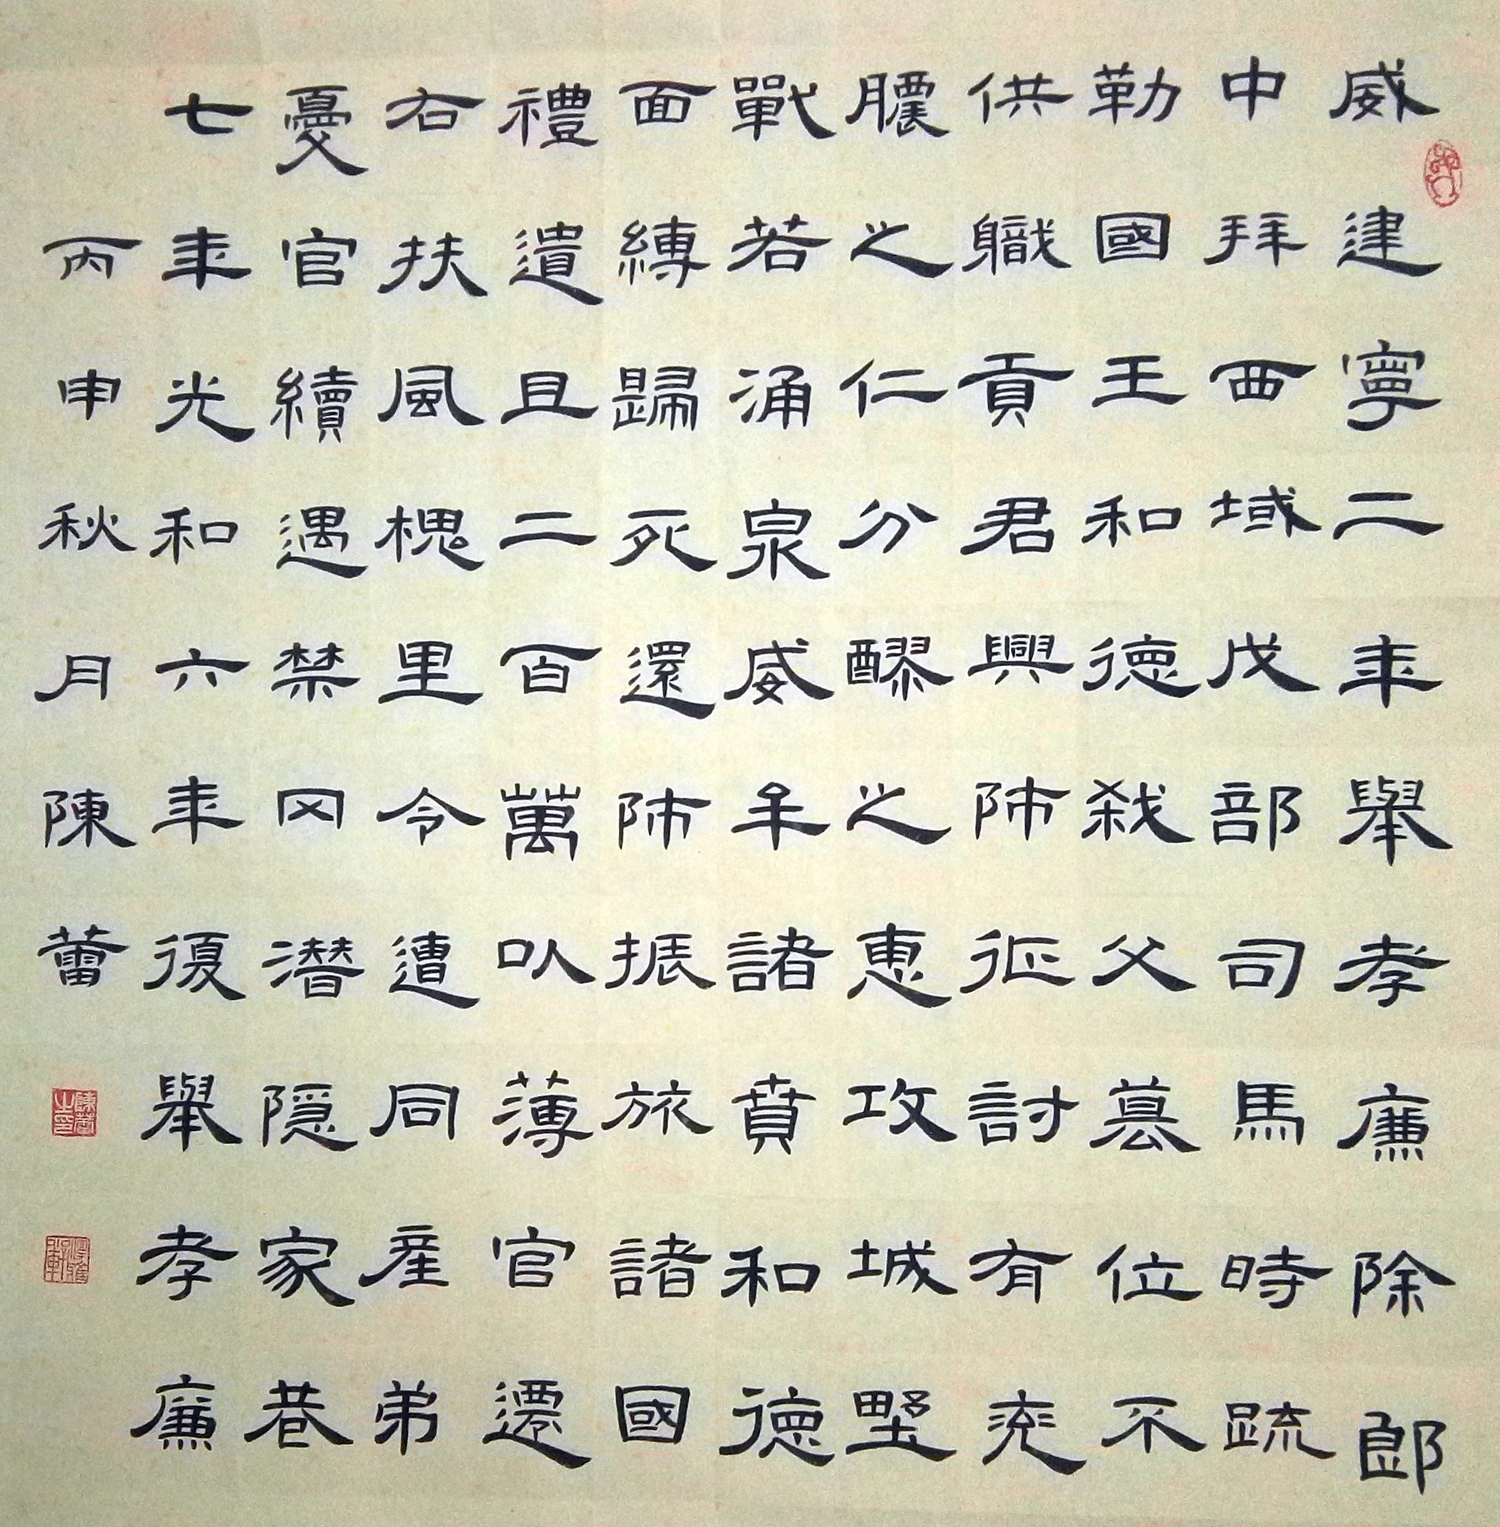 威建寧二年舉孝廉除郎
中拜西域戊部司馬時疏
勒國王和德弒父篡位不
供職貢君興師征討有兗
膿之仁分醪之惠攻城野
戰若涌泉威牟諸賁和德
面縛歸死還師振旅諸國
禮遺且二百萬以薄官遷
右扶風槐里令遭同產弟
憂官續遇禁网潛隱家巷
七年光和六年復舉孝廉
丙申秋月陳蕾
陳蕾之印